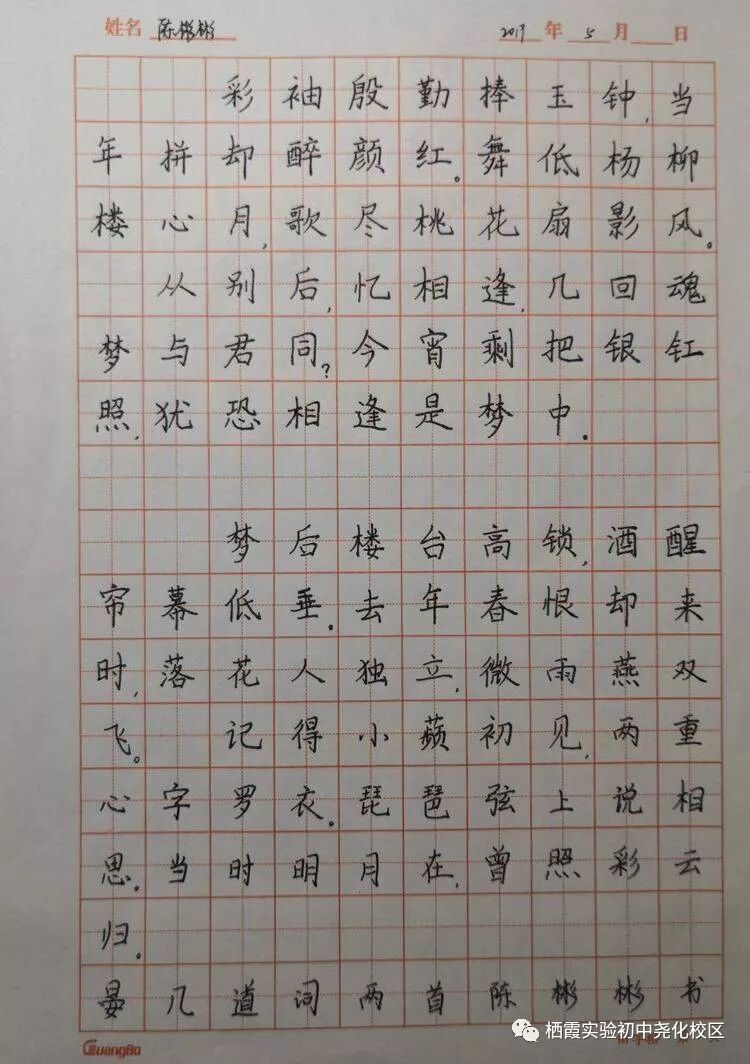 姓名 陈彬彬 2017 年 5 月 日
彩袖殷勤捧玉钟,当
年拼却醉颜红。舞低杨柳
楼心月,歌尽桃花扇影风。
从别后,忆相逢,几回魂
梦与君同?今宵剩把银釭
照,犹恐相逢是梦中。
梦后楼台高锁,酒醒
帘幕低垂。去年春恨却来
时,落花人独立,微雨燕双
飞。 记得小蘋初见,两重
心字罗衣。琵琶弦上说相
思。当时明月在,曾照彩云
归。
晏几道词两首陈彬彬书
GuangBo
栖霞实验初中尧化校区